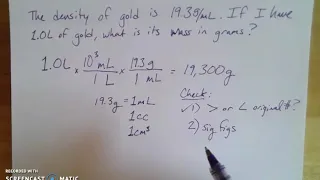 The density of gold is 19.3g/mL. If I have
1.0L of gold, what is its mass in grams?
1.0L x 10³mL / 1 L x 19.3g / 1 mL = 19,300g
19.3g = 1mL
1cc
1cm³
Check:
✓1) > or < original #?
2) sig figs
RECORDED WITH
SCREENCAST MATIC